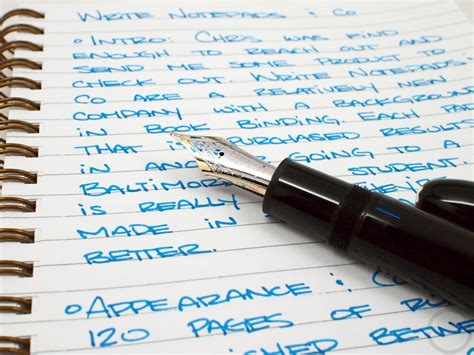 WRITE NOTEPADS & CO
• INTRO: CHRIS WAS KIND AND
ENOUGH TO REACH OUT AND
SEND ME SOME PRODUCT TO
CHECK OUT. WRITE NOTEPADS &
CO ARE A RELATIVELY NEW
COMPANY WITH A BACKGROUND
IN BOOK BINDING. EACH
THAT IS PURCHASED RESULT
IN GOING TO A
STUDENT.
IS REALLY
MADE IN
BETTER.
• APPEARANCE :
120 PAGES OF